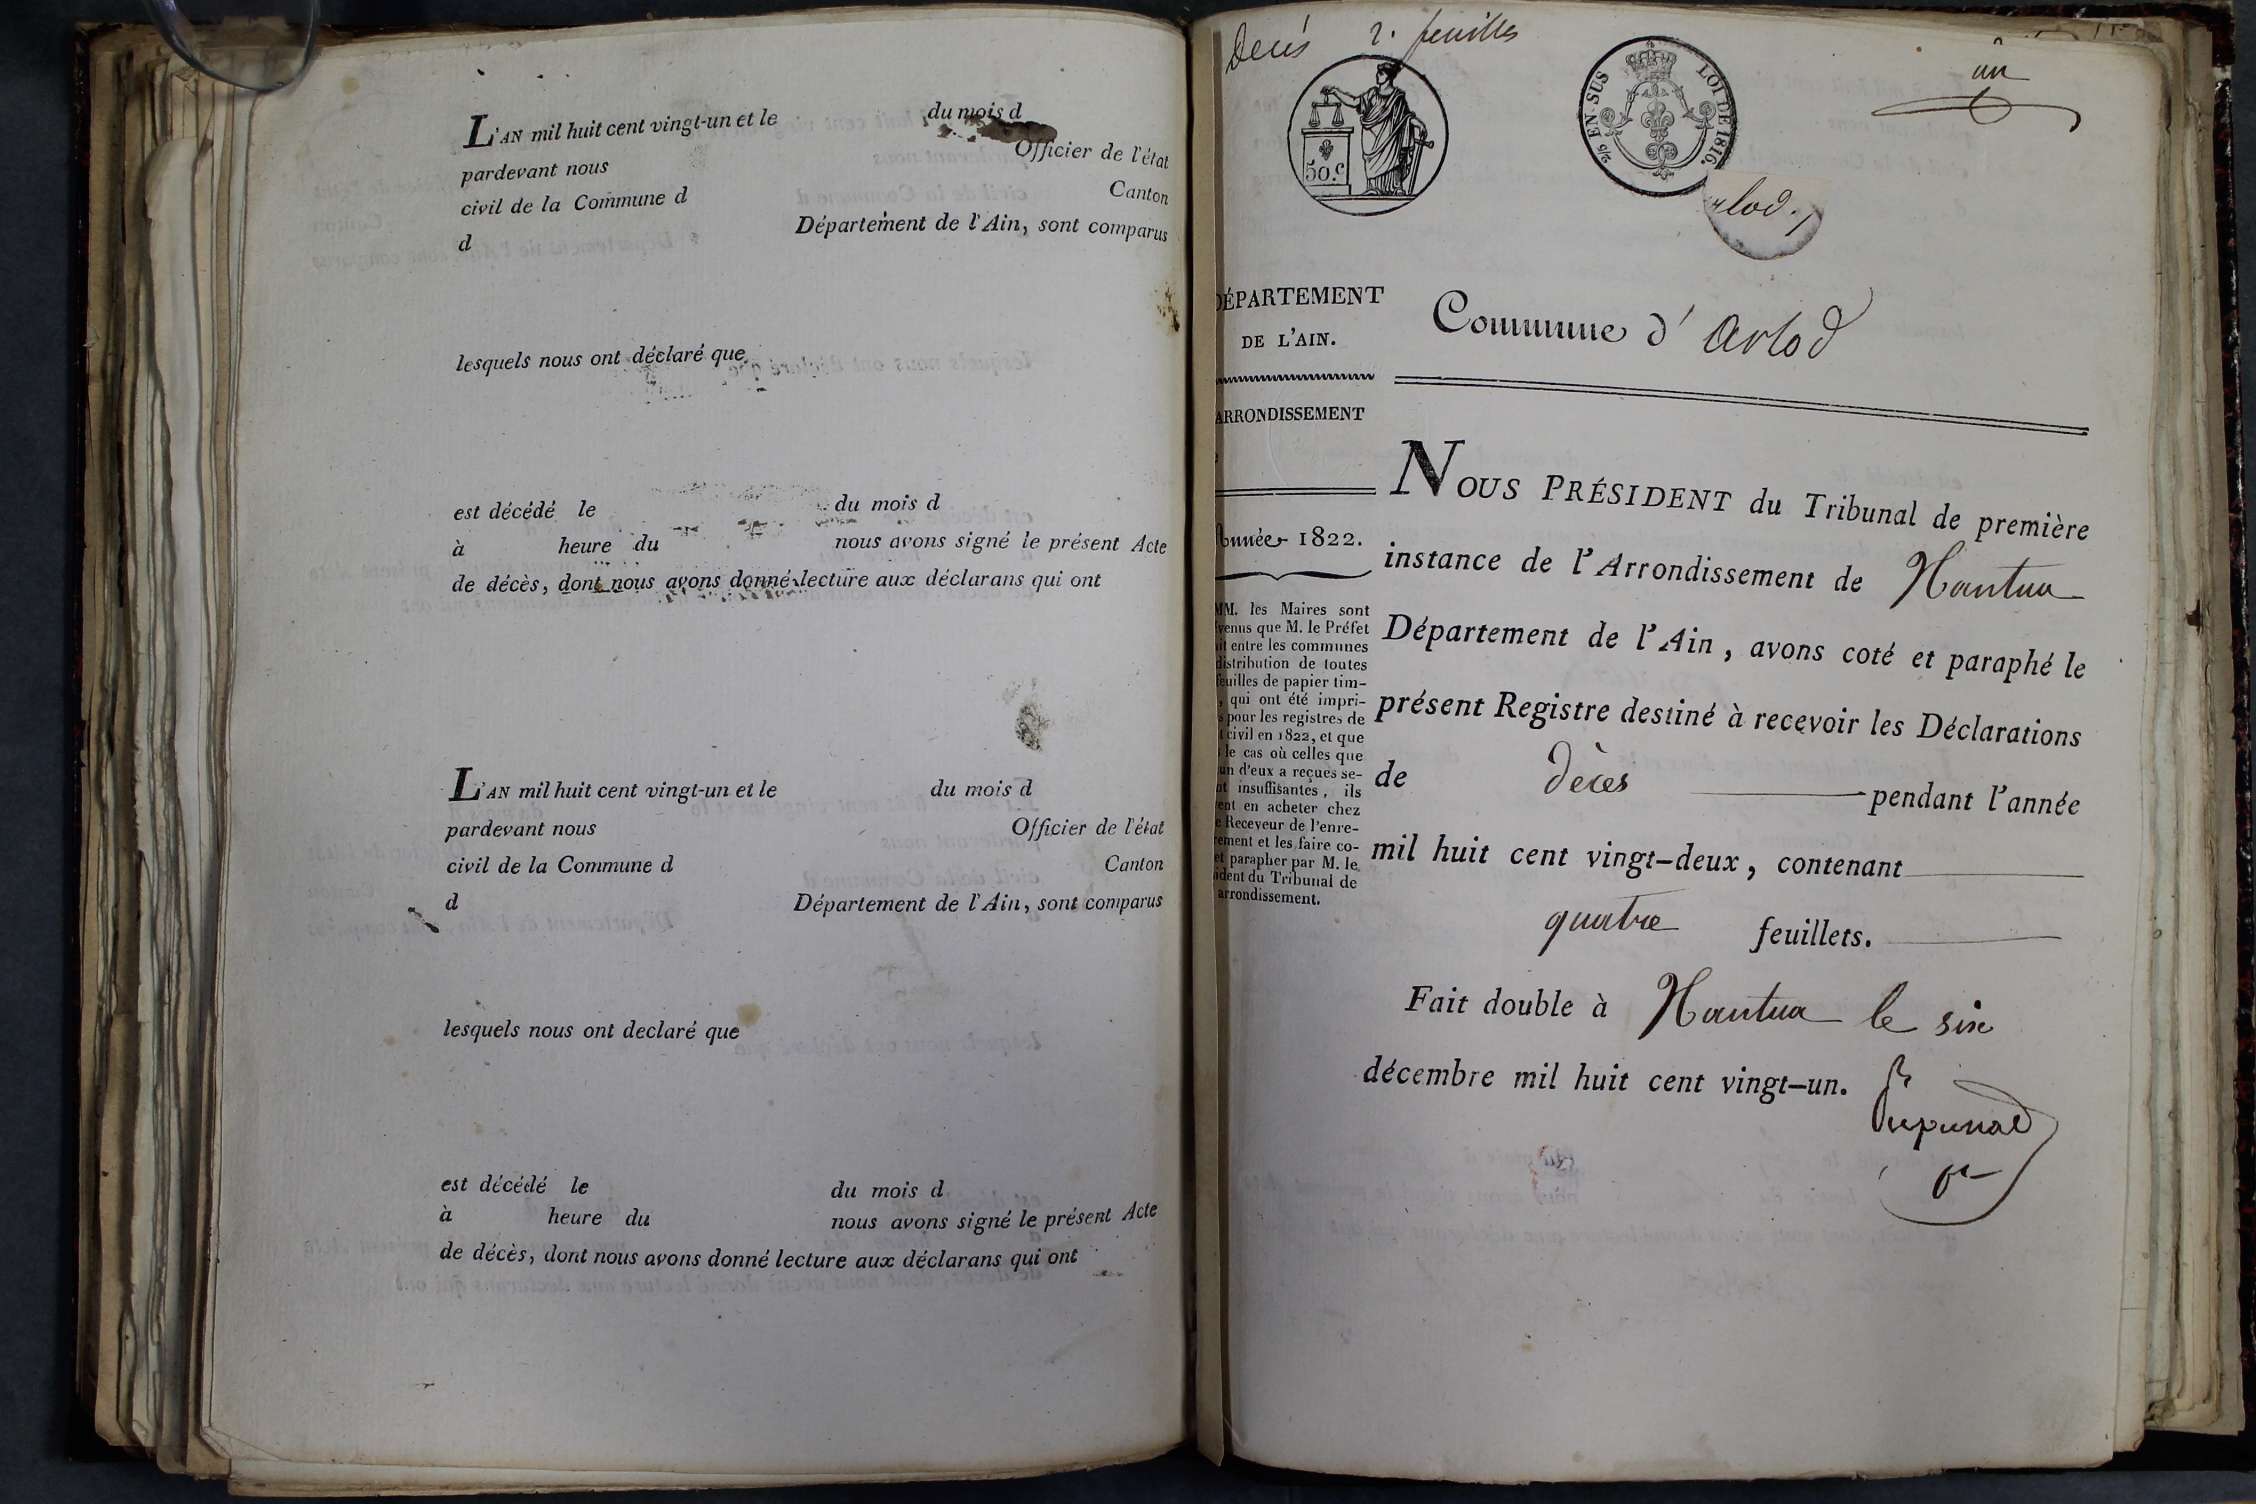 L'AN mil huit cent vingt-un et le du mois d
pardevant nous Officier de l'état
civil de la Commune d Canton
d Département de l'Ain, sont comparus
lesquels nous ont déclaré que
est décédé le du mois d
à heure du nous avons signé le présent Acte
de décès, dont nous avons donné lecture aux déclarans qui ont
L'AN mil huit cent vingt-un et le du mois d
pardevant nous Officier de l'état
civil de la Commune d Canton
d Département de l'Ain, sont comparus
lesquels nous ont declaré que
est décédé le du mois d
à heure du nous avons signé le présent Acte
de décès, dont nous avons donné lecture aux déclarans qui ont
Decés 2. feuilles
un
50.c
EN SUS LOI DE 1816.
rlod.
DÉPARTEMENT
DE L'AIN.
Commune d' Arlod
ARRONDISSEMENT
Année 1822.
MM. les Maires sont
venus que M. le Préfet
it entre les communes
distribution de toutes
feuilles de papier tim-
, qui ont été impri-
s pour les registres de
t civil en 1822, et que
s le cas où celles que
un d'eux a reçues se-
nt insuffisantes, ils
vent en acheter chez
e Receveur de l'enre-
rement et les faire co-
et parapher par M. le
ident du Tribunal de
arrondissement.
NOUS PRÉSIDENT du Tribunal de première
instance de l'Arrondissement de Nantua
Département de l'Ain, avons coté et paraphé le
présent Registre destiné à recevoir les Déclarations
de Déces pendant l'année
mil huit cent vingt-deux, contenant
quatre feuillets.
Fait double à Nantua le six
décembre mil huit cent vingt-un.